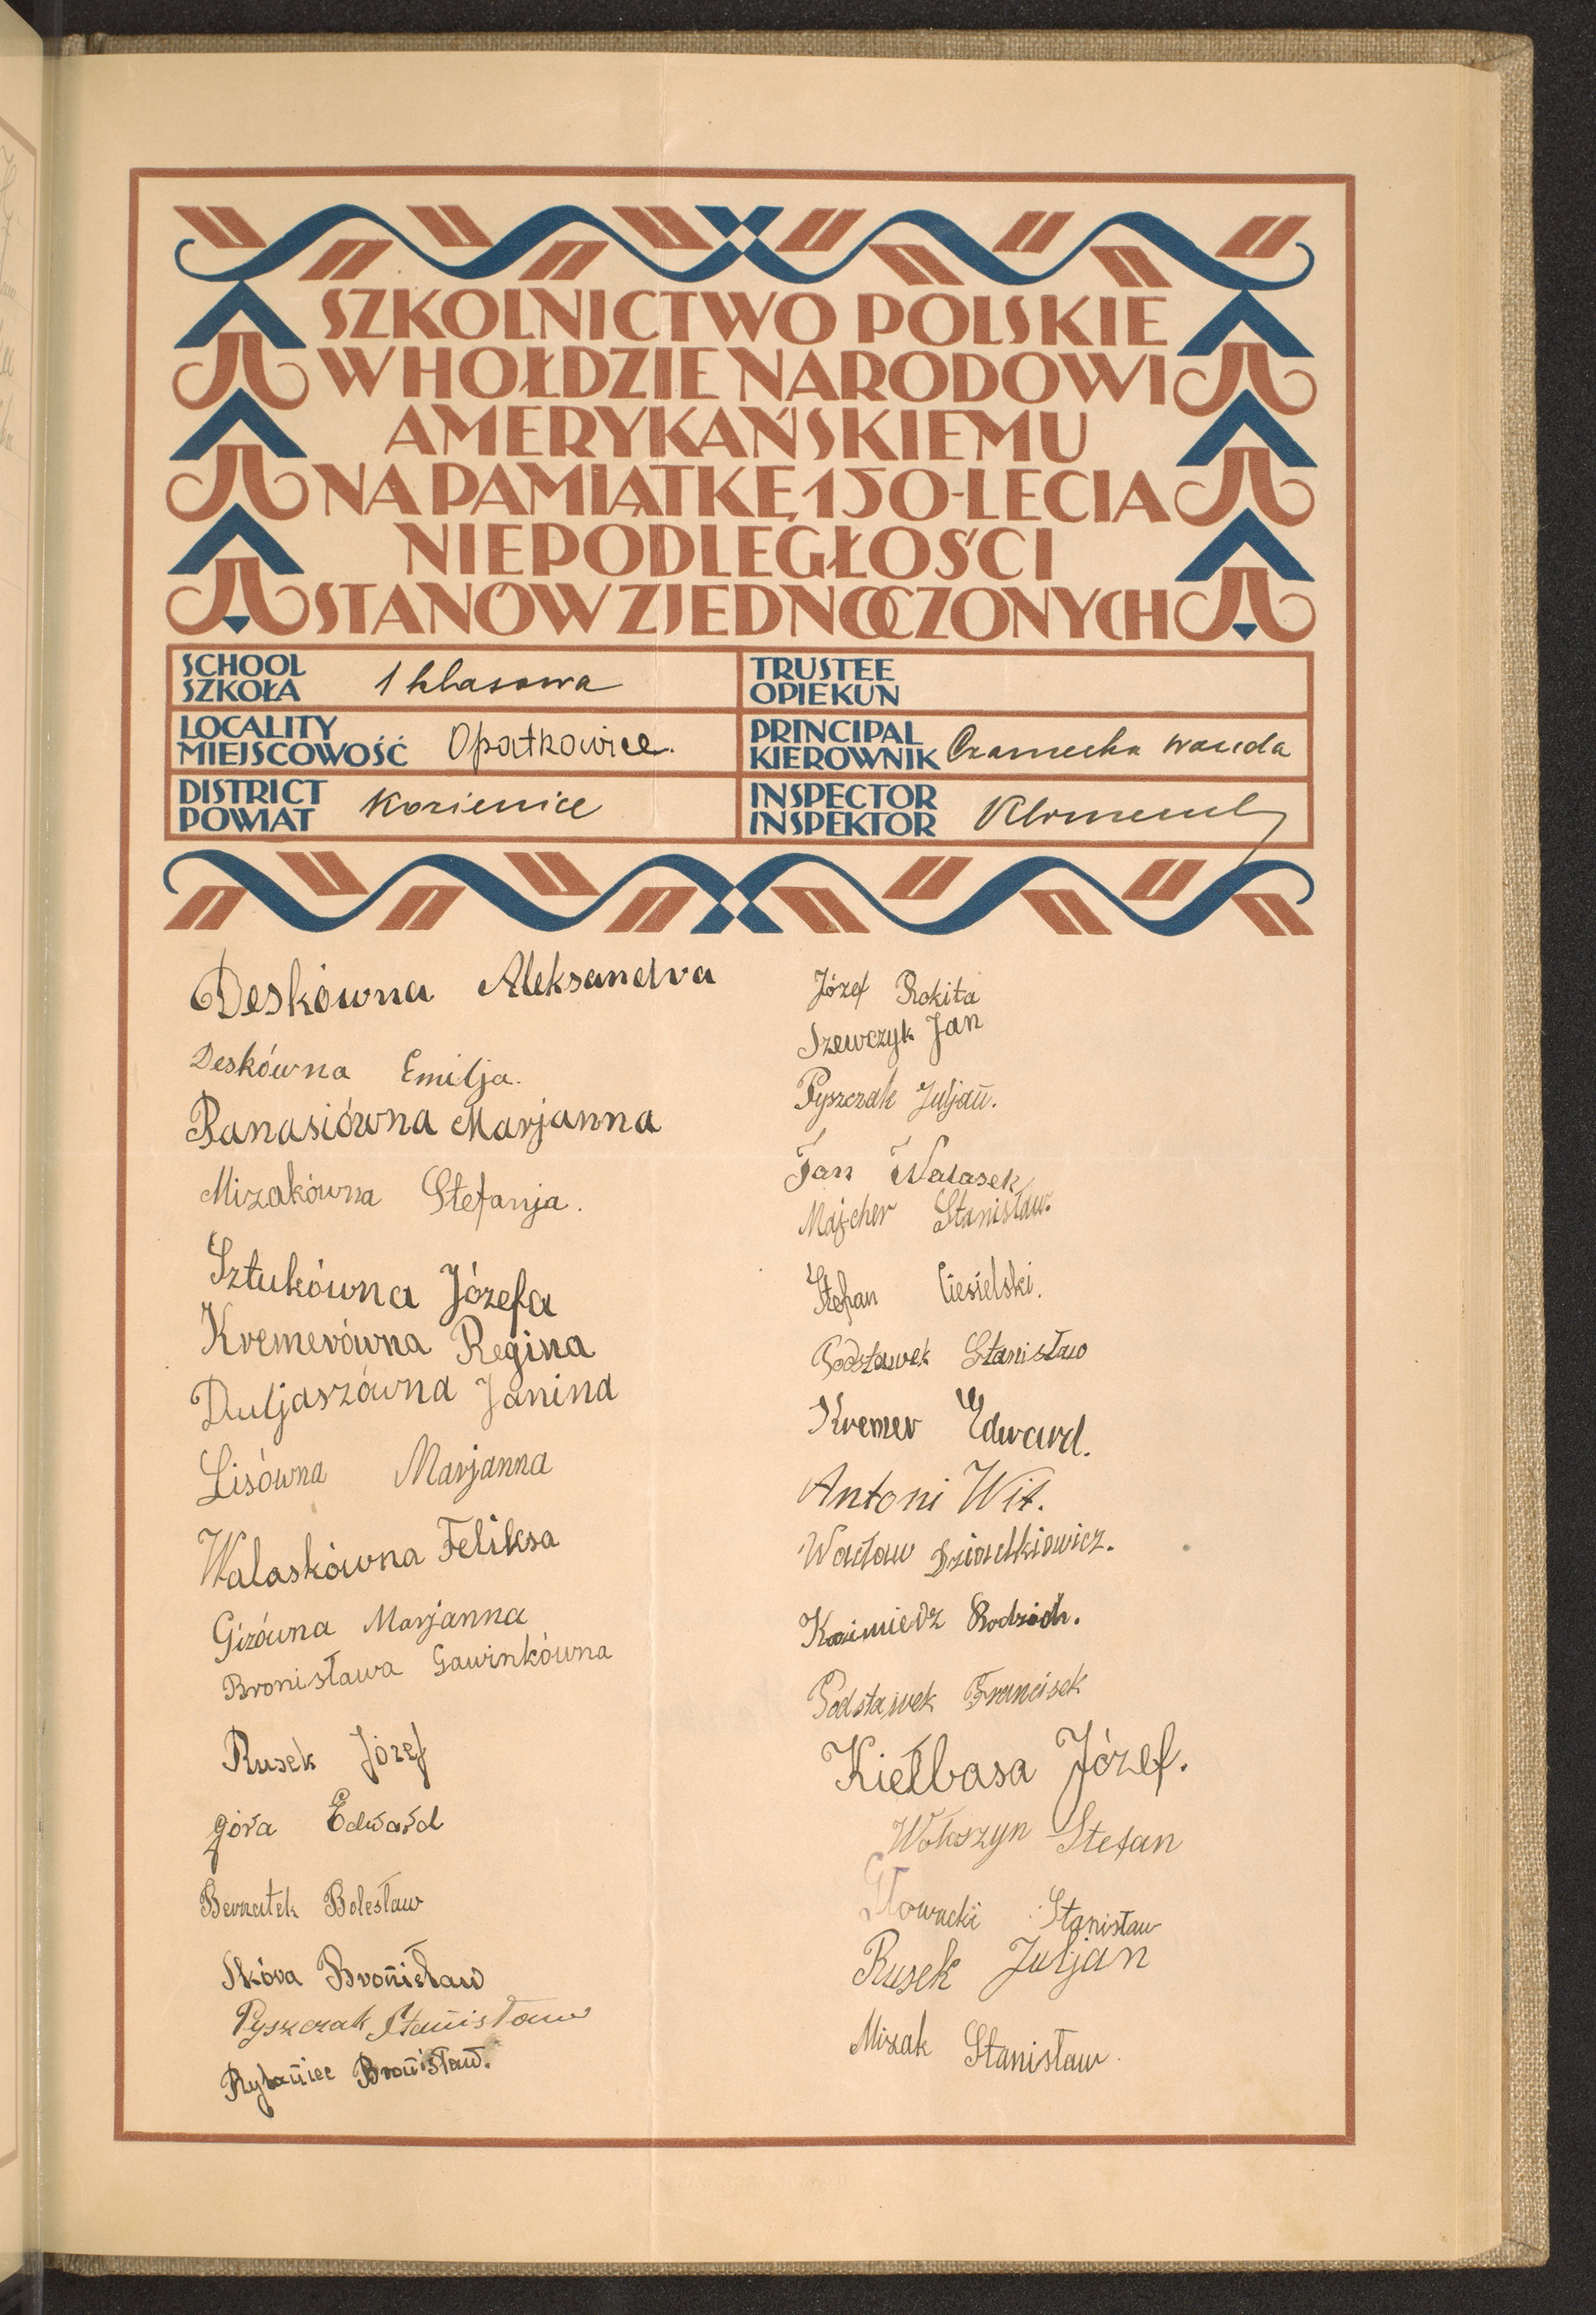 SZKOLNICTWO POLSKIE
W HOŁDZIE NARODOWI
AMERYKAŃSKIEMU
NA PAMIĄTKĘ 150-LECIA
NIEPODLEGŁOŚCI
STANÓW ZJEDNOCZONYCH
SCHOOL
SZKOŁA 1 klasowa
TRUSTEE
OPIEKUN
LOCALITY
MIEJSCOWOŚĆ Opatkowice.
PRINCIPAL
KIEROWNIK Czarnecka Wanda
DISTRICT
POWIAT Kozienice
INSPECTOR
INSPEKTOR
Deskówna Aleksandra
Deskówna Emilja.
Banasiówna Marjanna
Mizakówna Stefanja.
Sztukówna Józefa
Kremerówna Regina
Duljaszówna Janina
Lisówna Marjanna
Walaskówna Feliksa
Gizówna Marjanna
Bronisława Gawinkówna
Rusek Józef
Góra Edward
Bernatek Bolesław
Skóra Bronisław
Pyszczak Stanisław
Bronisław.
Józef Rokita
Szewczyk Jan
Pyszczak Juljan.
Jan Walasek
Majcher Stanisław.
Stefan Ciesielski.
Podstawek Stanisław
Kremer Edward.
Antoni Wit.
Wacław
Kazimierz
Podstawek Francisek
Kiełbasa Józef.
Wołoszyn Stefan
Głowacki Stanisław
Rusek Juljan
Mizak Stanisław